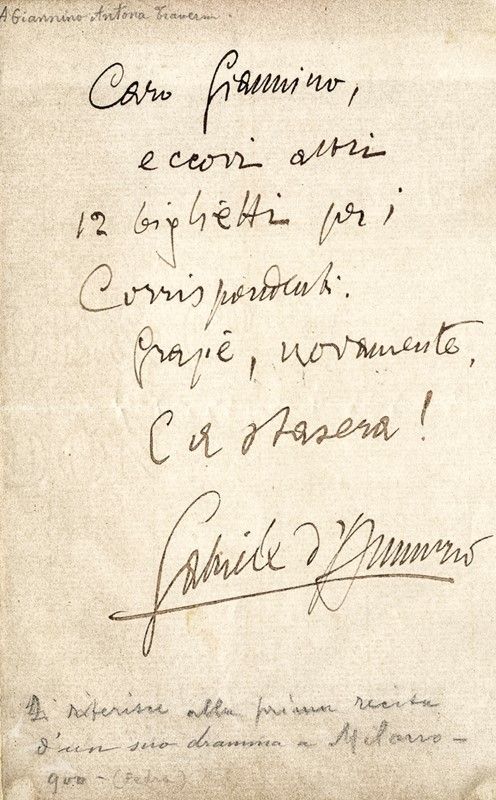 A Giannino Antona Traversi.
Caro Giannino,
eccovi altri
12 biglietti per i
Corrispondenti.
Grazie, novamente,
E a stasera!
Gabriele d'Annunzio
Si riferisce alla prima recita
d'un suo dramma a Milano –
(Fedra)